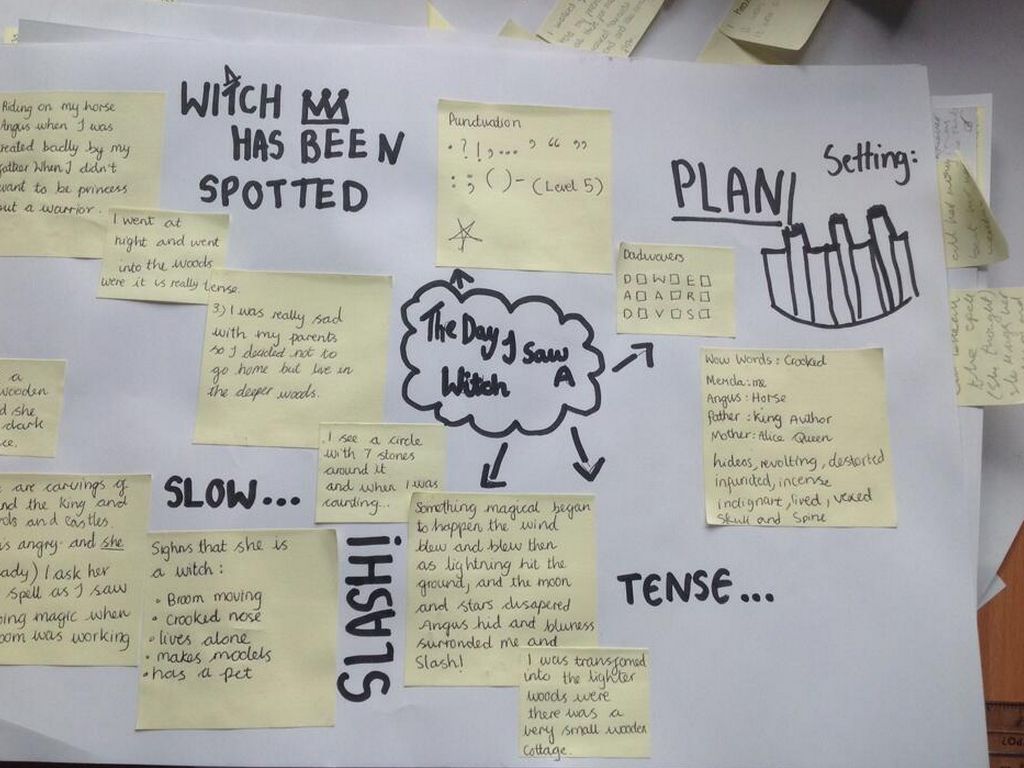 WITCH
HAS BEEN
SPOTTED
Riding on my horse
Angus when I was
reated badly by my
father When I didn't
want to be princess
but a warrior.
I went at
night and went
into the woods
were it is really tense.
3) I was really sad
with my parents
so I decided not to
go home but live in
the deeper woods.
a
wooden
d she
dark
ce.
I see a circle
with 7 stones
around it
and when I was
counting...
SLOW...
are carvings of
nd the King and
ds and castles.
is angry and she
ady) I ask her
spell as I saw
oing magic when
oom was working
Sighns that she is
a witch:
• Broom moving
• crooked nose
• lives alone
• makes models
• has a pet
SLASH!
Puntuation
. ? ! , ... , “ ”
: ; ( ) - (Level 5)
The Day I Saw
A
Witch
Dadwavers
D W E
A A R
D V S
PLAN
Setting:
Wow Words: Crooked
Merida: me
Angus: Horse
Father: King Author
Mother: Alice Queen
hideos, revolting, destorted
infurided, incense
indignart, lived, vexed
Skull and Spine
Something magical began
to happen the wind
blew and blew then
as lightning hit the
ground, and the moon
and stars disapered
Angus hid and bluness
surronded me and
Slash!
TENSE...
I was transfomed
into the lighter
woods were
there was a
very small wooden
Cottage.